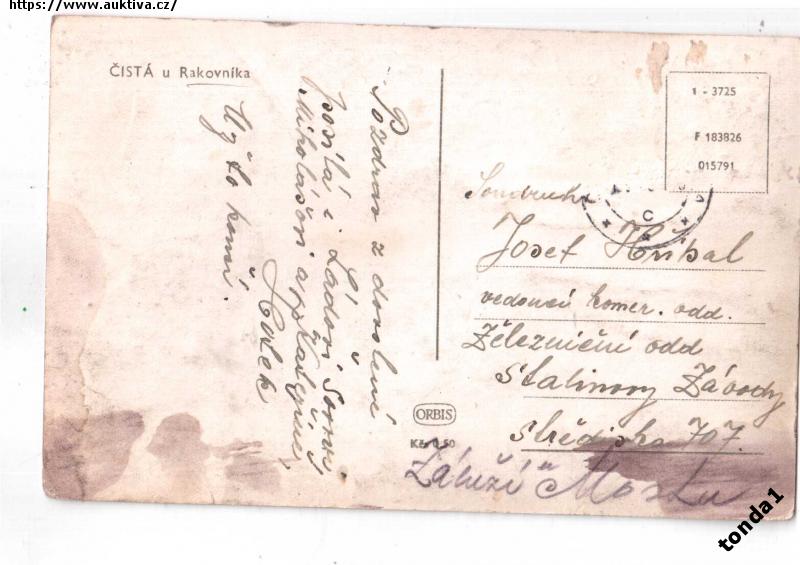 https://www.auktiva.cz/
ČISTÁ u Rakovníka
Pozdrav z dovolené
posílá i Láďovi
Mikolášovi a
Už to končí.
1 - 3725
F 183826
015791
C
Soudruh
Josef Hřibal
vedoucí komer. odd.
Železniční odd
Stalinovy Závody
Středisko 707.
Záluží u Mostu
ORBIS
Kčs 0,50
tonda1